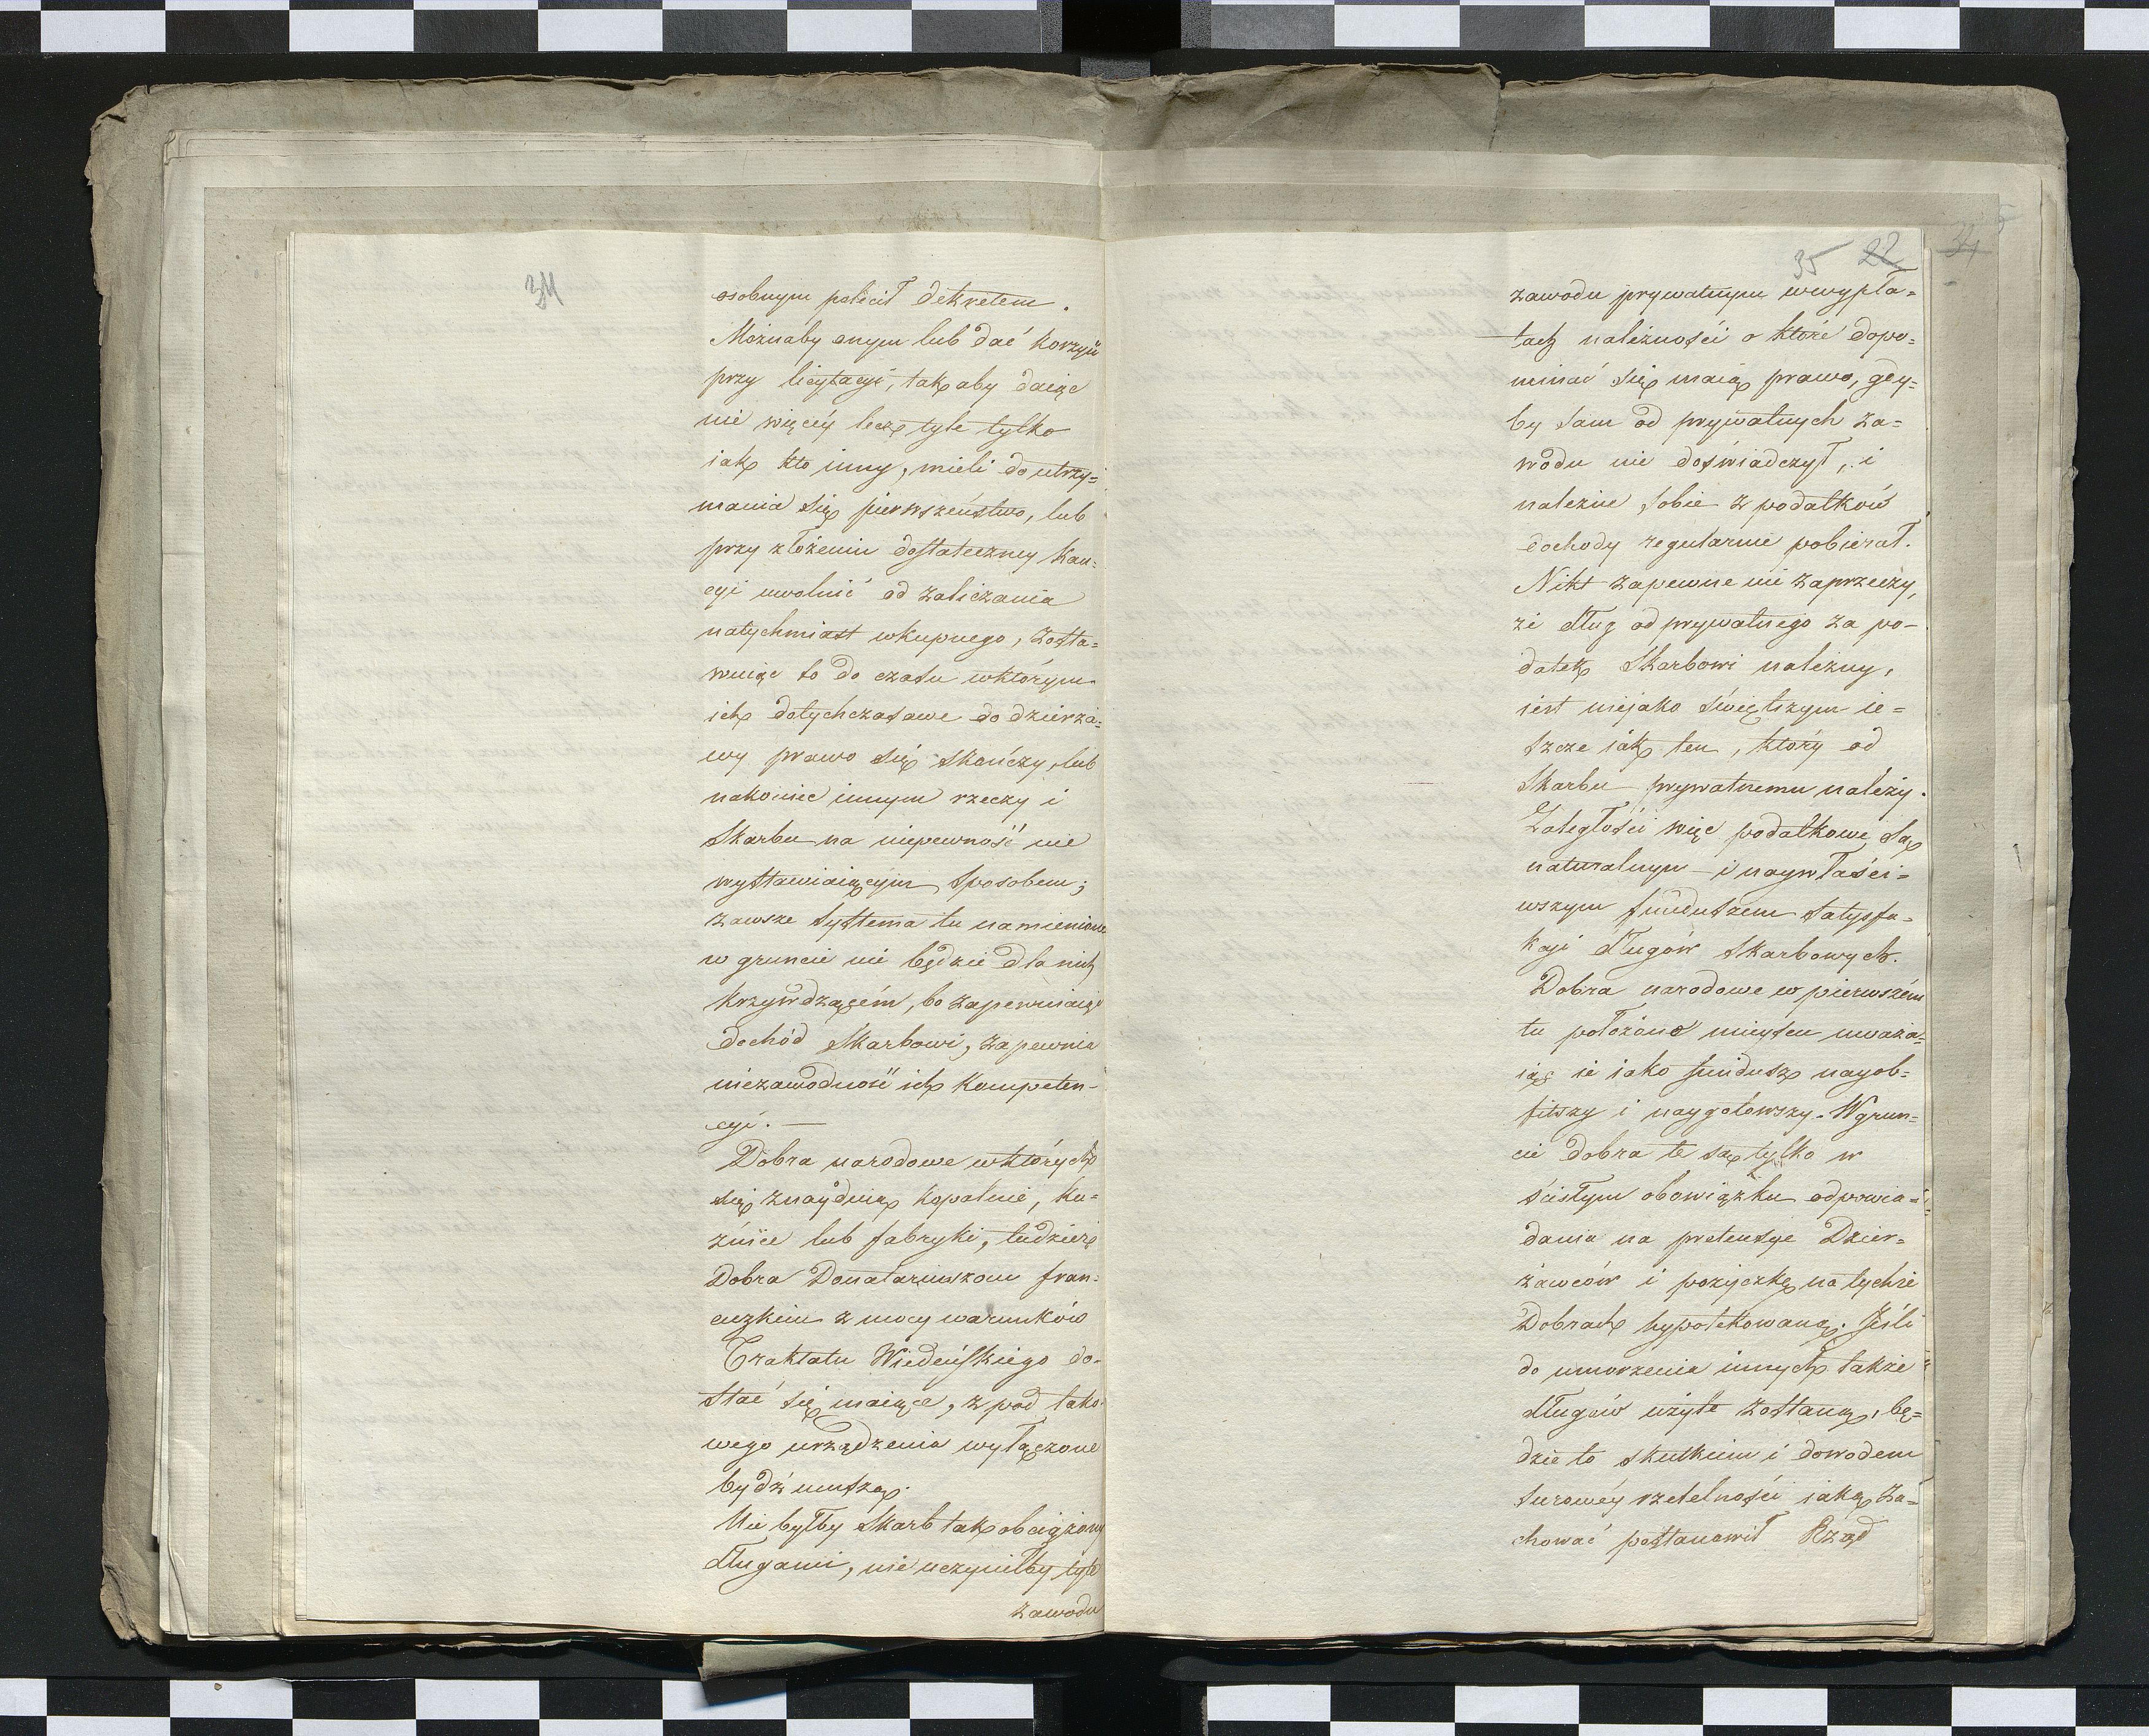 34
osobnym polecił dekretem.
Możnaby onym lub dać korzyść
przy licytacyi, tak aby daiąc
nie więcéy lecz tyle tylko
iak kto inny, mieli do utrzy=
mania się pierwszeństwo, lub
przy złożeniu dostateczney kau=
cyi uwolnić od zaliczania
natychmiast wkupnego, zosta=
wuiąc to do czasu w którym
ich dotychczasowe do dzierża=
wy prawo się skończy, lub
nakoniec innym rzeczy i
Skarbu na niepewność nie
wystawiaiącym sposobem;
zawsze systema tu namienione
w gruncie nie będzie dla nich
krzywdzącém, bo zapewniaiąc
dochód Skarbowi, zapewnia
niezawodność ich kompeten=
cyi. —
Dobra narodowe w których
się znayduią kopalnie, ku=
źnice lub fabryki, tudzież
Dobra Donataryuszom fran=
cuzkim z mocy warunków
Traktatu Wiedeńskiego do=
stać się maiące, z pod tako=
wego urządzenia wyłączone
bydź muszą.
Nie byłby Skarb tak obciążony
długami, nie uczyniłby tyle
zawodu
35 22
34
zawodu prywatnym w wypła=
tach należności o które dopo=
minać się maią prawo, gdy=
by sam od prywatnych za=
wodu nie doświadczył, i
należne sobie z podatków
dochody regularnie pobierał.
Nikt zapewne nie zaprzeczy,
że dług od prywatnego za po=
datek Skarbowi należny,
iest niejako świętszym ie=
szcze iak ten, który od
Skarbu prywatnemu należy.
Zaległości więc podatkowe są
naturalnym i naywłaści=
wszym funduszem satysfa=
kcyi długów Skarbowych.
Dobra narodowe w pierwszém
tu położono mieyscu uważa=
iąc ie iako fundusz nayob=
fitszy i naygotowszy. W grun=
cie dobra te są tylko w
ścisłym obowiązku odpowia=
dania na pretensye Dzier=
żawców i pożyczkę na tychże
Dobrach hypotekowaną. Jeśli
do umorzenia innych także
długów użyte zostaną, bę=
dzie to skutkiem i dowodem
surowéy rzetelności iaką za=
chować postanowił Rząd